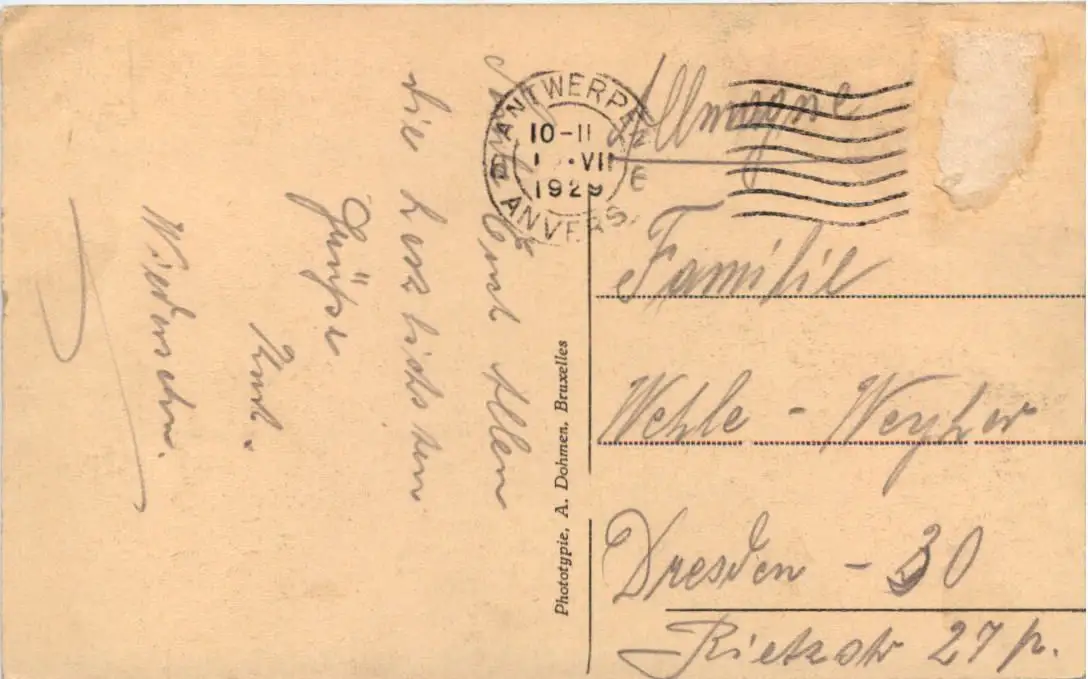 Euch Allen
die herzlichsten
Grüsse
Kurt.
Wiedersehn.
ANTWERPEN
10-11
VII
1929
ANVERS
Allemagne
Familie
Wehle - Weyher
Dresden - 30
Rietzstr 27 p.
Phototypie, A. Dohmen, Bruxelles